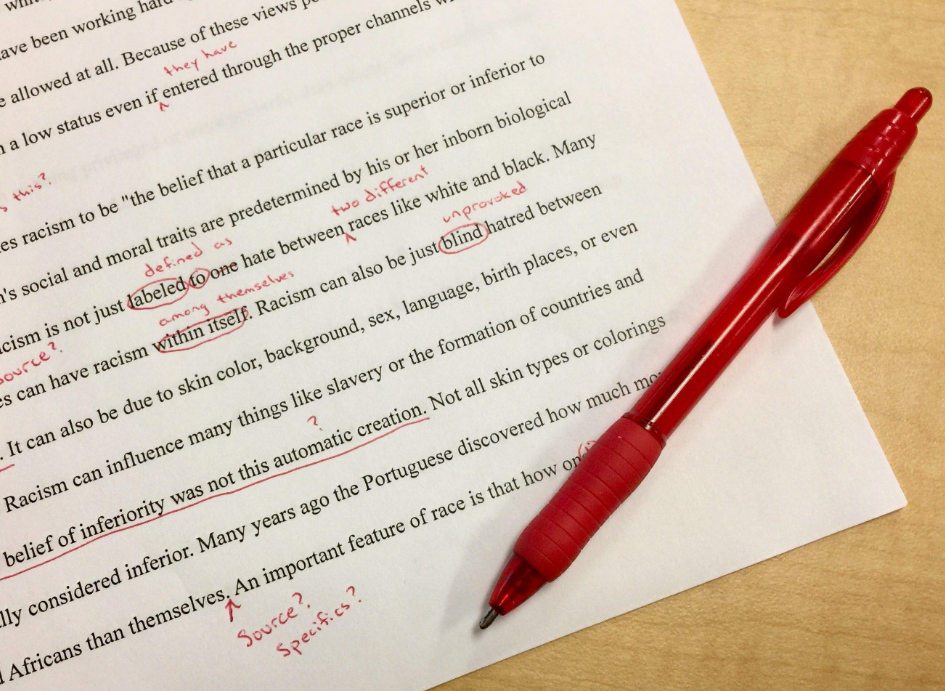 ave been working hard
e allowed at all. Because of these views
they have
a low status even if entered through the proper channels
es racism to be "the belief that a particular race is superior or inferior to
s this?
n's social and moral traits are predetermined by his or her inborn biological
two different
defined as
cism is not just labeled to one hate between races like white and black. Many
unprovoked
among themselves
es can have racism within itself. Racism can also be just blind hatred between
source?
. It can also be due to skin color, background, sex, language, birth places, or even
Racism can influence many things like slavery or the formation of countries and
?
belief of inferiority was not this automatic creation. Not all skin types or colorings
lly considered inferior. Many years ago the Portuguese discovered how much
d Africans than themselves. An important feature of race is that how
Source?
Specifics?